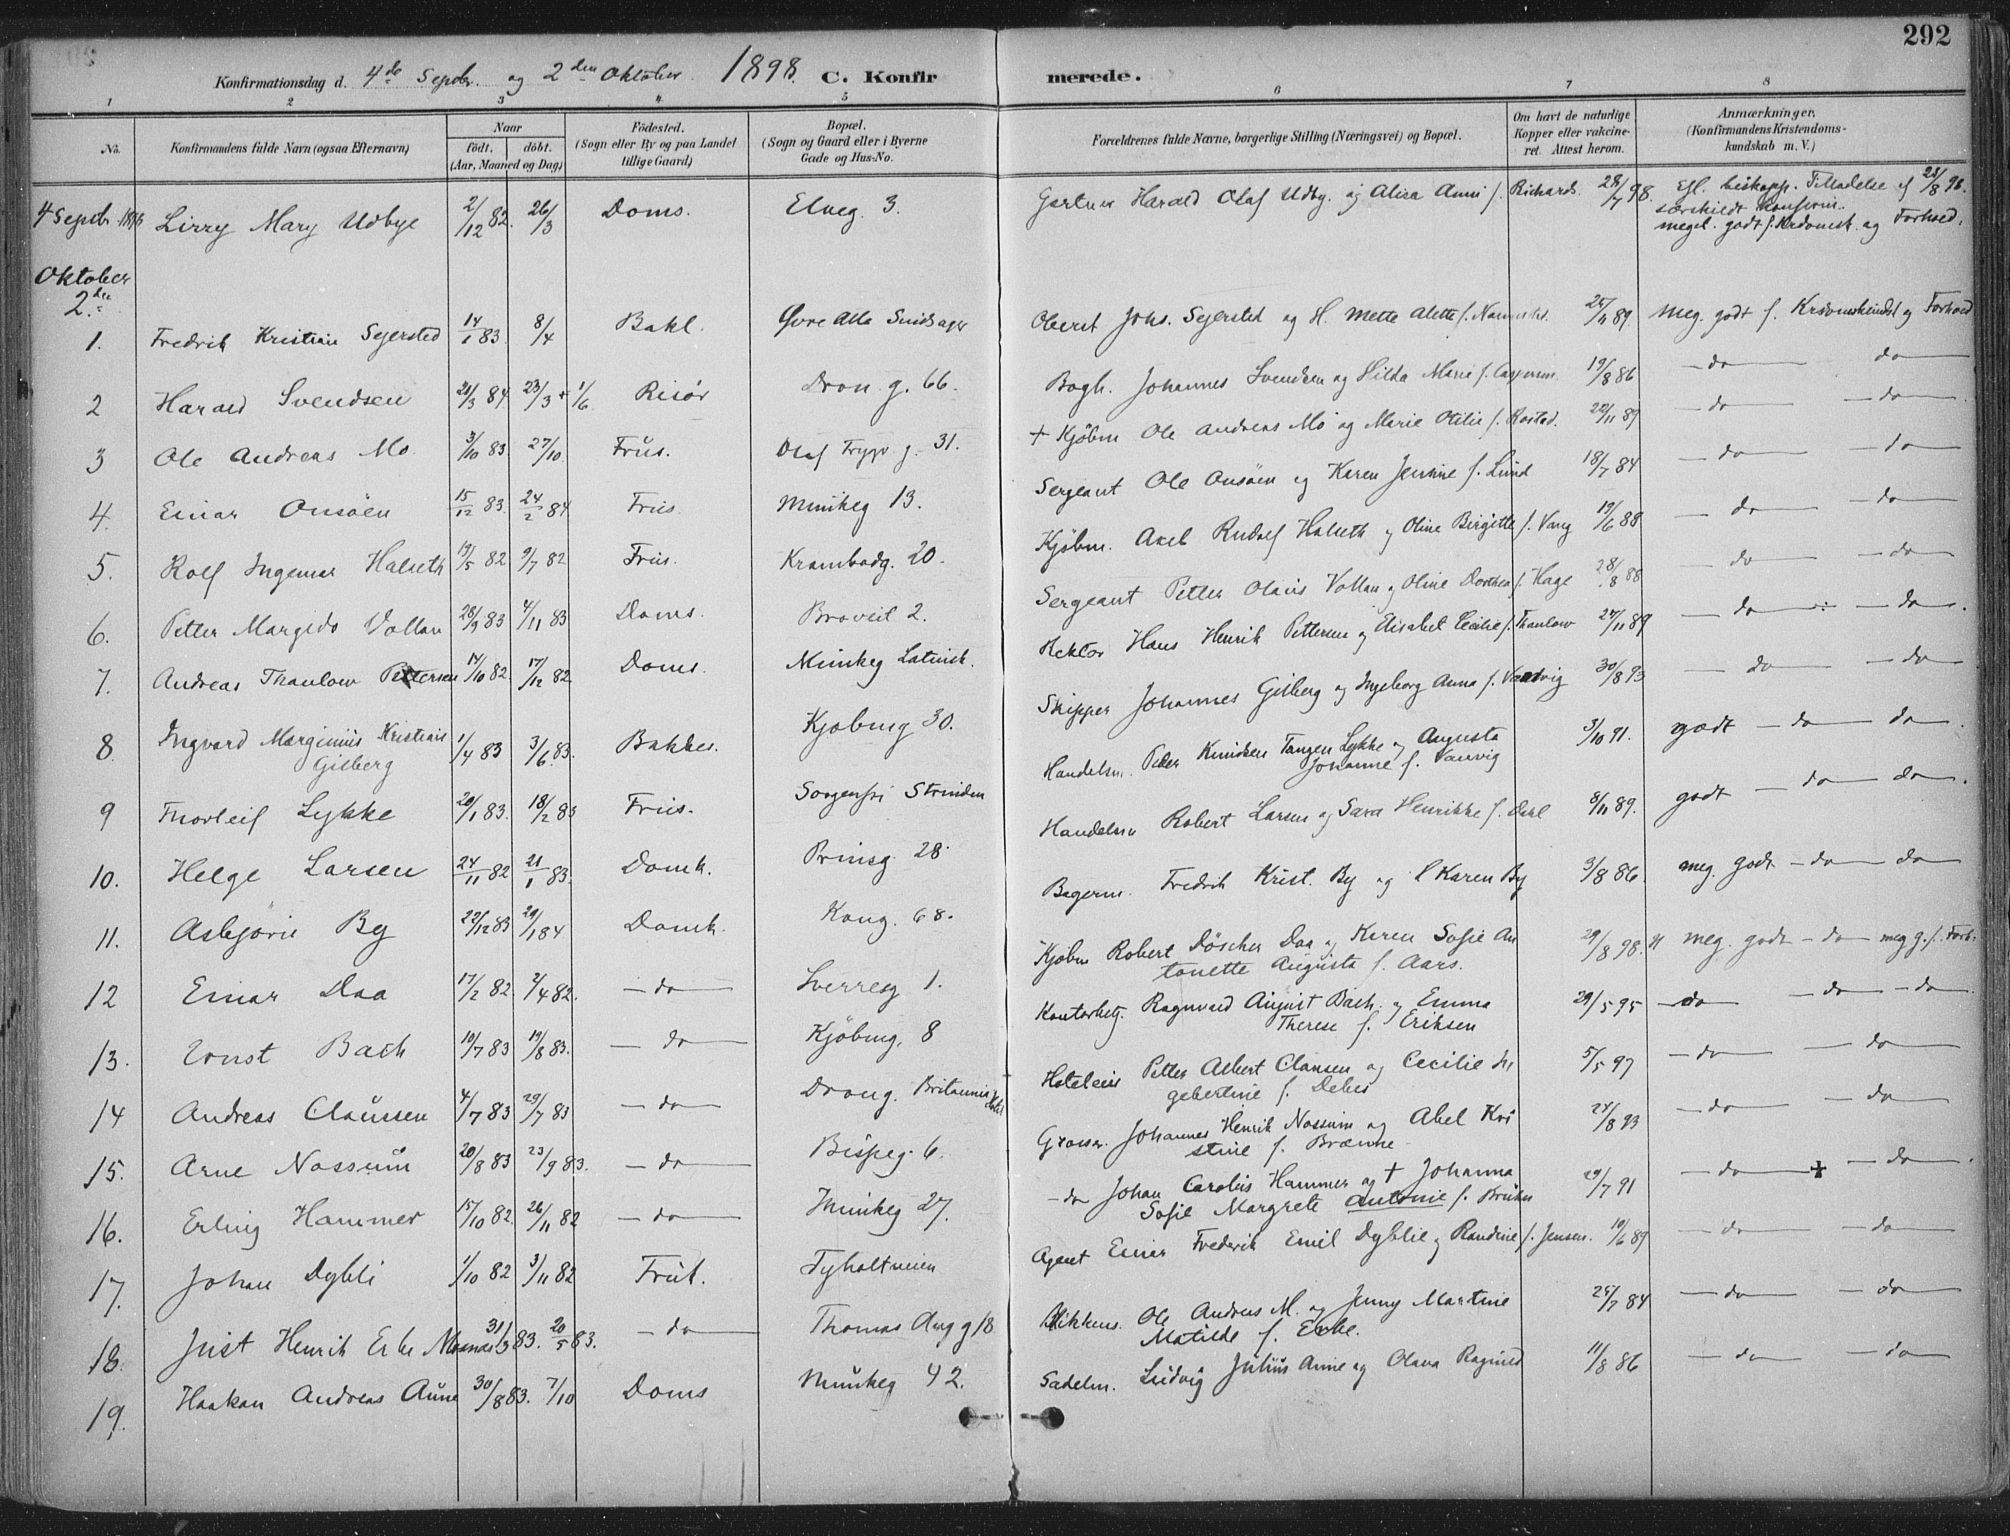 292
Konfirmationsdag d. 4de Septbr. og 2den Oktober. 1898. C. Konfirmerede.
1 2 3 4 5 6 7 8
No. Konfirmandens fulde Navn (ogsaa Efternavn) Naar födt. döbt. (Aar, Maaned og Dag) Födested. (Sogn eller By og paa Landet tillige Gaard) Bopæl. (Sogn og Gaard eller i Byerne Gade og Hus-No. Forældrenes fulde Navne, borgerlige Stilling (Næringsvei) og Bopæl. Om havt de naturlige Kopper eller vakcineret. Attest herom. Anmærkninger. (Konfirmandens Kristendomskundskab m. V.)
4 Septb 1898 Lizzy Mary Udbye 2/12 82. 26/3 Doms. Elveg. 3. Gartner Harald Olaf Udby. og Alisa Anni f. Richards. 28/7 98. Efl. biskopp. Tilladelse af 22/8 98. særskildt konfirm. meget godt f. Krdomsk. og Forhold.
Oktober 2den
1. Fredrik Kristian Sejersted 14/1 83 8/4 Bakl. Øvre Alle Oberst Johs. Sejersted og H. Mette Alette f. 25/11 89 Meg. godt f. Krdomskundsk og Forhold
2 Harald Svendsen 21/3 84 23/3 + 1/6 Risör Dron. g. 66. Bogh. Johannes Svendsen og Hilda Marie f. 19/8 86 — do — do
3 Ole Andreas Mo. 3/10 83 27/10. Frus. Olaf Trygv g. 31. + Kjøbm Ole Andreas Mo og Marie Otilie f. Rostad. 22/11 89 — do — do
4. Einar Onsöen 15/12 83. 24/2 84 Frus. Munkeg 13. Sergeant Ole Onsöen og Karen Jensine f. Lund 18/7 84 — do — do
5. Rolf Ingemar Halseth 19/5 82 9/7 82 Frus. Krambodg. 20. Kjøbm. Axel Rudolf Halseth og Oline Birgitte f. Vang 19/6 88 — do — do
6. Petter Margido Vollan 28/9 83 4/11 83 Doms. Broveit 2. Sergeant Petter Olaus Vollan og Oline Dorthea f. Hage 28/8 88 — do — do
7. Andreas Thaulow Pettersen 14/10 82 17/12 82 Doms. Munkeg Latinsk. Rektor Hans Henrik Pettersen og Elisabet Cecilie f. Thaulow 24/11 89 — do — do.
8. Ingvard Marginius Kristian Gisberg 1/4 83 3/6 83. Bakkes. Kjøbmg 30. Skipper Johannes Gisberg og Ingeborg Anna f. 30/8 93 — do — do
9 Thorleif Lykke 20/1 83. 18/2 83 Frus. Sorgenfri Strinden Handelsm. Peder Knudsen Tangen Lykke og Augusta Johanne f. Vanvig 3/10 91. godt — do — do.
10. Helge Larsen 24/11 82 21/1 83. Domk. Prinsg 28. Handelsm Robert Larsen og Sara Henrikke f. Dahl 8/11 89. godt — do — do.
11. Asbjørn By 22/12 83 29/1 84 Domk. Kong. 68. Bagerm. Fredrik Krist. By og Karen By 3/8 86. meg. godt — do — do
12 Einar Daa 17/2 82. 2/4 82. — do — Sverresg 1. Kjøbm Robert Döscher Daa og Karen Sofie Antonette Augusta f. Aars. 29/8 98. meg. godt — do meg g. f. Forh.
13. Ernst Bach 10/7 83 19/8 83. — do — Kjöbmg. 8 Kontorbetj. Ragnvald August Bach og Emma Therese f. Eriksen 29/5 95 — do — do — do
14 Andreas Claussen 4/7 83 29/7 83 — do — Drong. Britannia Hotel Hoteleier Petter Albert Clausen og Cecilie Ingebertine f. Debes 5/5 97 — do — do
15. Arne Nossum 20/8 83 23/9 83. — do — Bispeg. 6. Grosser. Johannes Henrik Nossum og Abel Kristine f. Brænne 24/8 93 — do — do
16. Erling Hammer 15/10 82. 26/11 82 — do — Munkeg 27. — do Johan Carolus Hammer og + Johanna Sofie Margrete Antonie f. 29/7 91 — do — do.
17. Johan Dybli 1/10 82 3/11 82 Fruk. Tyholtveien Agent Einar Frederik Emil Dyblie og Randine f. Jensen. 10/6 89 — do — do
18. Just Henrik Erbe 31/3 83. 20/5 83. — do — Thomas Ang g 18 Ole Andreas M. og Jenny Martine Matilde f. Erbe. 25/7 84 — do — do
19. Haakon Andreas Aune 30/8 83. 7/10 Doms Munkeg 42. Sadelm. Ludvig Julius Aune og Olava Ragnild 11/8 86 — do — do